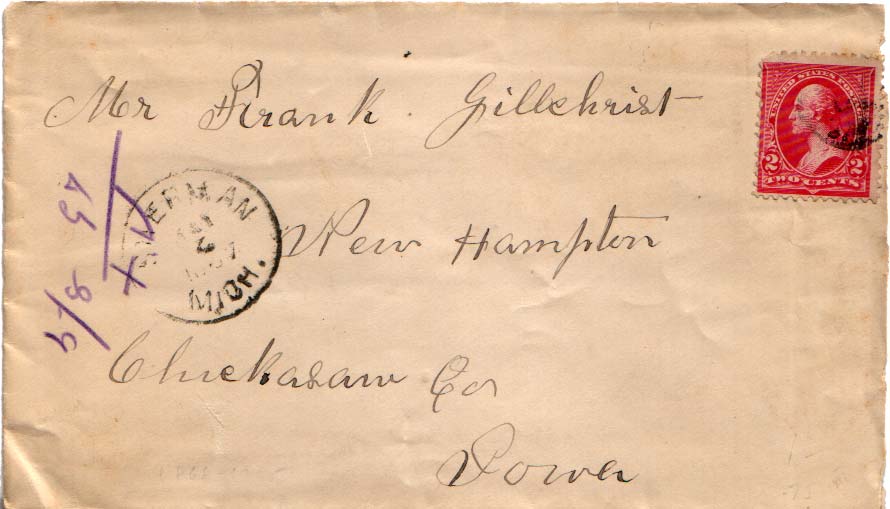 Mr Frank Gillchrist
New Hampton
Chickasaw Co
Iowa
UNITED STATES POSTAGE
2 2
TWO CENTS
SHERMAN
MICH.
8/9